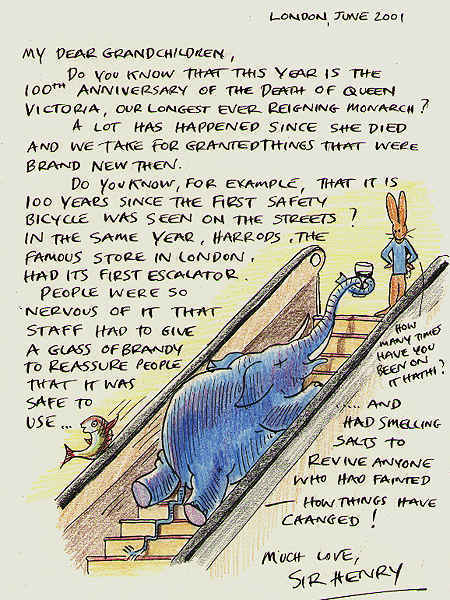 LONDON, JUNE 2001
MY DEAR GRANDCHILDREN,
DO YOU KNOW THAT THIS YEAR IS THE
100TH ANNIVERSARY OF THE DEATH OF QUEEN
VICTORIA, OUR LONGEST EVER REIGNING MONARCH?
A LOT HAS HAPPENED SINCE SHE DIED
AND WE TAKE FOR GRANTED THINGS THAT WERE
BRAND NEW THEN.
DO YOU KNOW, FOR EXAMPLE, THAT IT IS
100 YEARS SINCE THE FIRST SAFETY
BICYCLE WAS SEEN ON THE STREETS?
IN THE SAME YEAR, HARRODS, THE
FAMOUS STORE IN LONDON,
HAD ITS FIRST ESCALATOR.
PEOPLE WERE SO
NERVOUS OF IT THAT
STAFF HAD TO GIVE
A GLASS OF BRANDY
TO REASSURE PEOPLE
THAT IT WAS
SAFE TO
USE...
HOW
MANY TIMES
HAVE YOU
BEEN ON
IT HATHI?
..... AND
HAD SMELLING
SALTS TO
REVIVE ANYONE
WHO HAD FAINTED
— HOW THINGS HAVE
CHANGED!
MUCH LOVE,
SIR HENRY